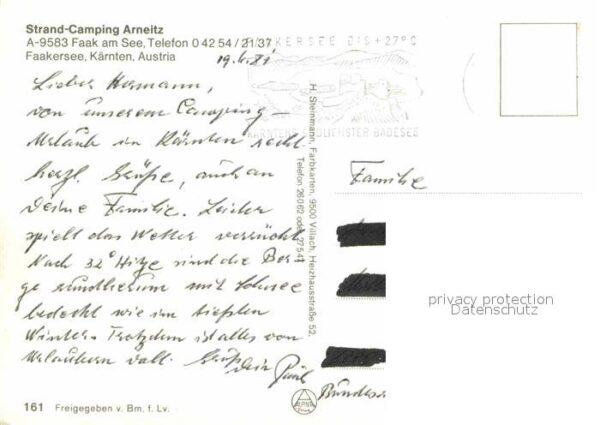 Strand-Camping Arneitz
A-9583 Faak am See, Telefon 0 42 54 / 21 37
Faakersee, Kärnten, Austria
19.6.81
Lieber Hermann,
von unserem Camping-
Urlaub in Kärnten recht
herzl. Grüße, auch an
Deine Familie. Leider
spielt das Wetter verrückt.
Nach 32° Hitze sind die Ber-
ge rundherum mit Schnee
bedeckt wie im tiefsten
Winter. Trotzdem ist alles von
Urlaubern voll. Grüße
Dein
161 Freigegeben v. Bm. f. Lv.
H. Steinmann, Farbkarten, 9500 Villach, Heizhausstraße 52,
Telefon 26062 oder 27541
FAAKERSEE BIS +27°C
BADESEE
Familie
privacy protection
Datenschutz